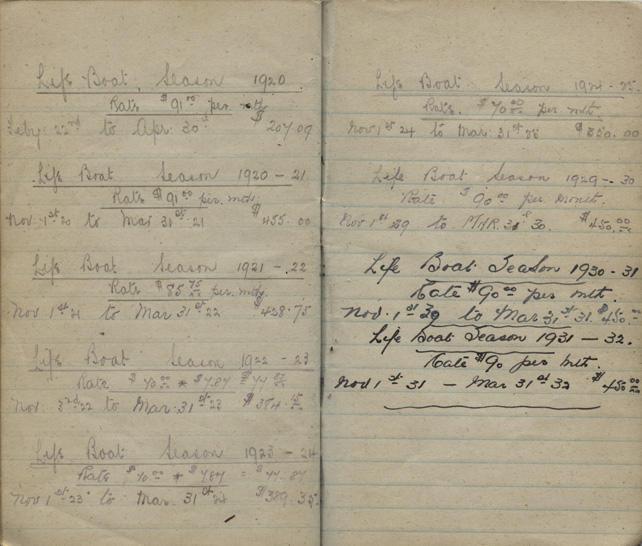 Life Boat. Season 1920
Rate $91.00 per mth
Feby 22nd to Apr. 30st $207.09
Life Boat Season 1920 - 21
Rate $91.00 per mth.
Nov 1st 20 to Mar 31st 21 $455.00
Life Boat Season 1921 - 22
Rate $85.75 per mth
Nov 1st 21 to Mar 31st 22 $428.75
Life Boat Season 1922 - 23
Rate $70.00 * $7.87
Nov. 3rd 22 to Mar. 31st 23 $384.15
Life Boat Season 1923 - 24
Rate $70.00 * $7.87 = $77.87
Nov 1st 23 to Mar. 31st 24 $389.35
Life Boat Season 1924 - 25.
Rate. $70.00 per mth
Nov 1st 24 to Mar. 31st 25 $350.00
Life Boat Season 1929 - 30
Rate $90.00 per month.
Nov 1st 29 to MAR. 31st 30. $450.00
Life Boat Season 1930 - 31
Rate $90.00 per mth.
Nov. 1st 30 to Mar. 31st 31. $450.00
Life Boat Season 1931 - 32.
Rate $90 per mth.
Nov 1st 31 - Mar 31st 32 $450.00